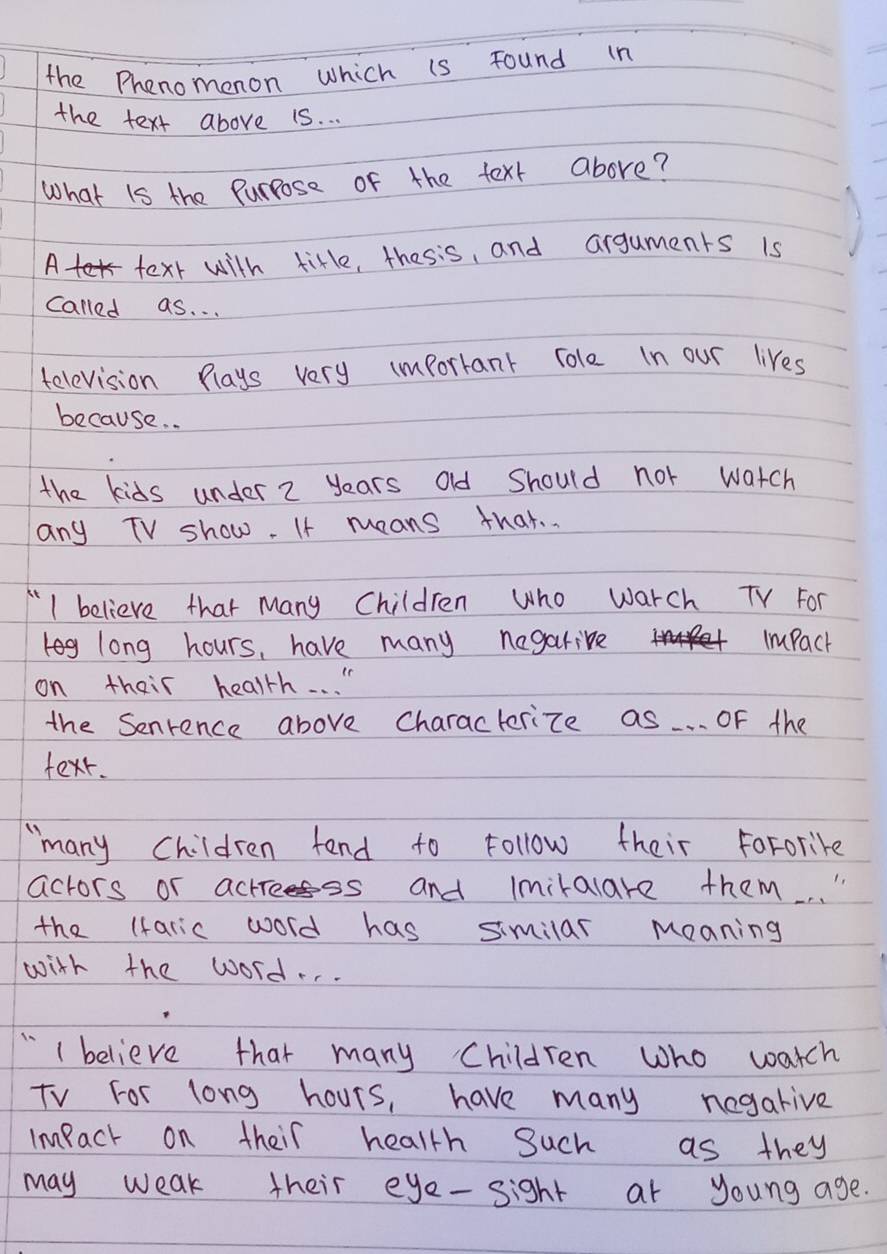 the Phenomenon which is Found in
the text above is...
What is the Purpose OF the text above?
A tex text with title, thesis, and arguments is
called as...
television Plays very important role in our lives
because..
the kids under 2 years old Should not watch
any TV show. It means that..
"I believe that Many Children who watch TV For
log long hours, have many negative impet impact
on their health..."
the Sentence above Characterize as .... OF the
text.
"many Children tend to Follow their Faforite
actors or actress and imitalate them ..."
the Italic word has similar Meaning
with the word...
"I believe that many Children who watch
TV For long hours, have many negative
impact on their health Such as they
may weak their eye-sight at young age.